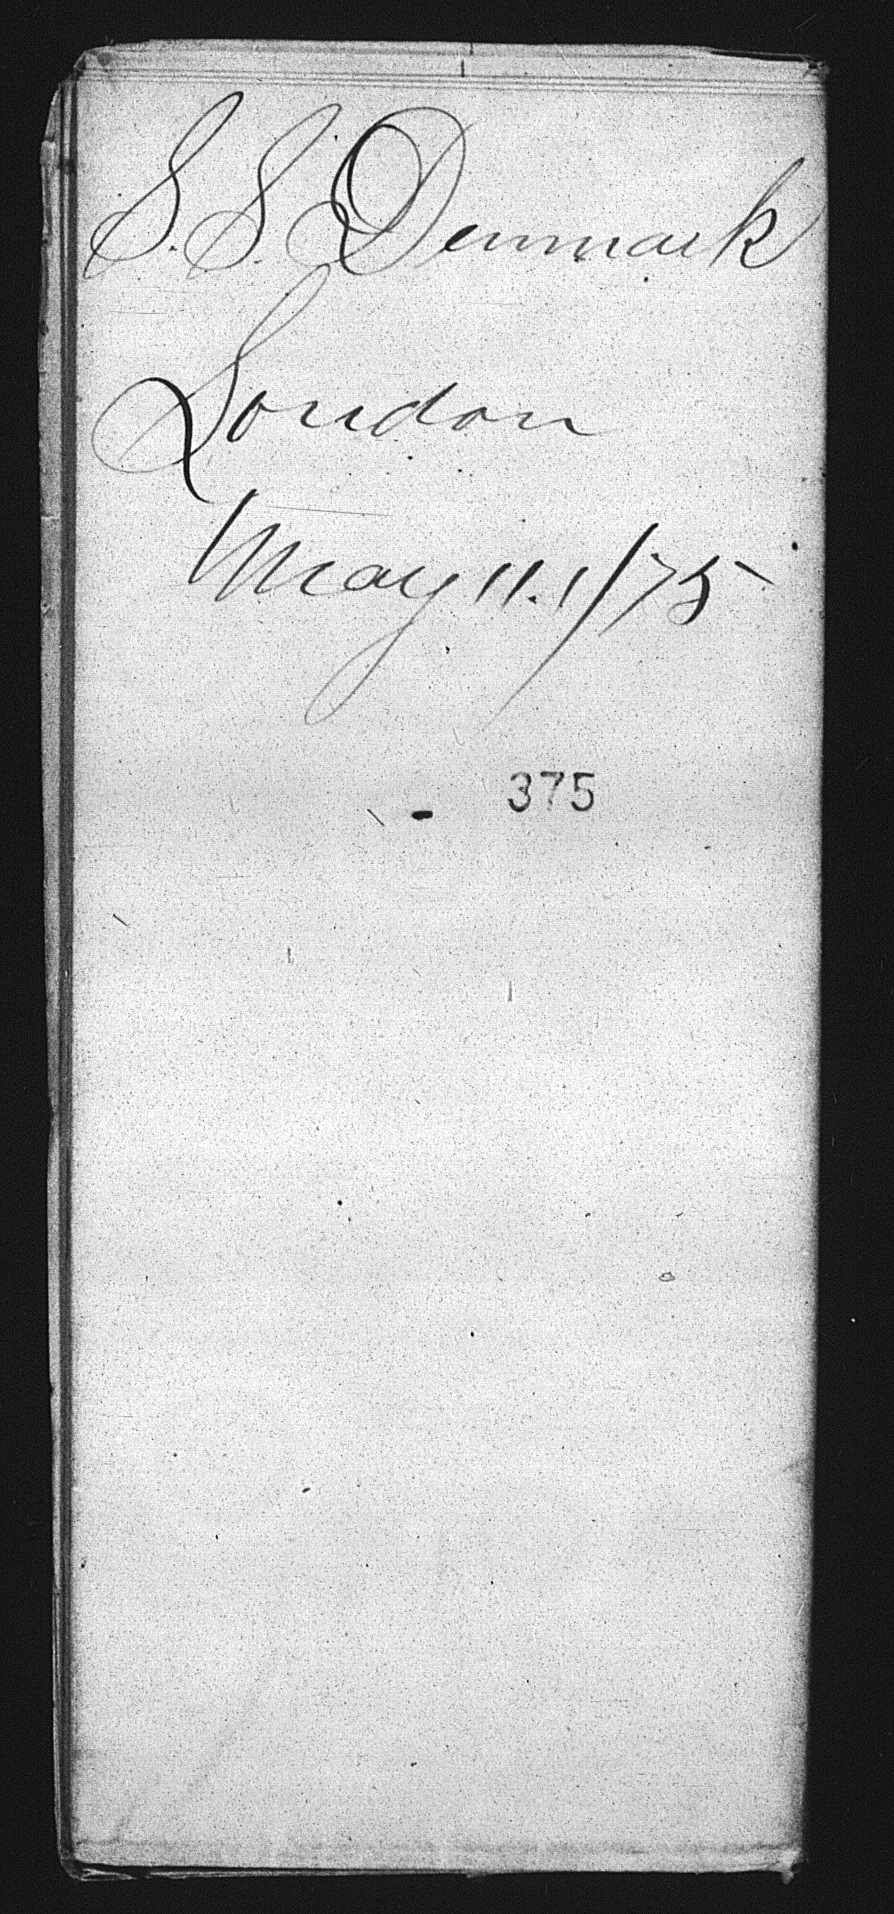 S. S. Denmark
London
May 11. 1/75
375